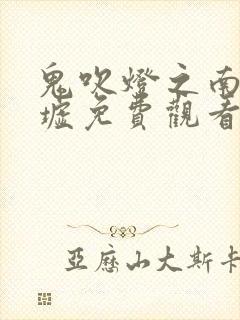 鬼吹燈之南
墟免費觀看
亞歷山大斯卡